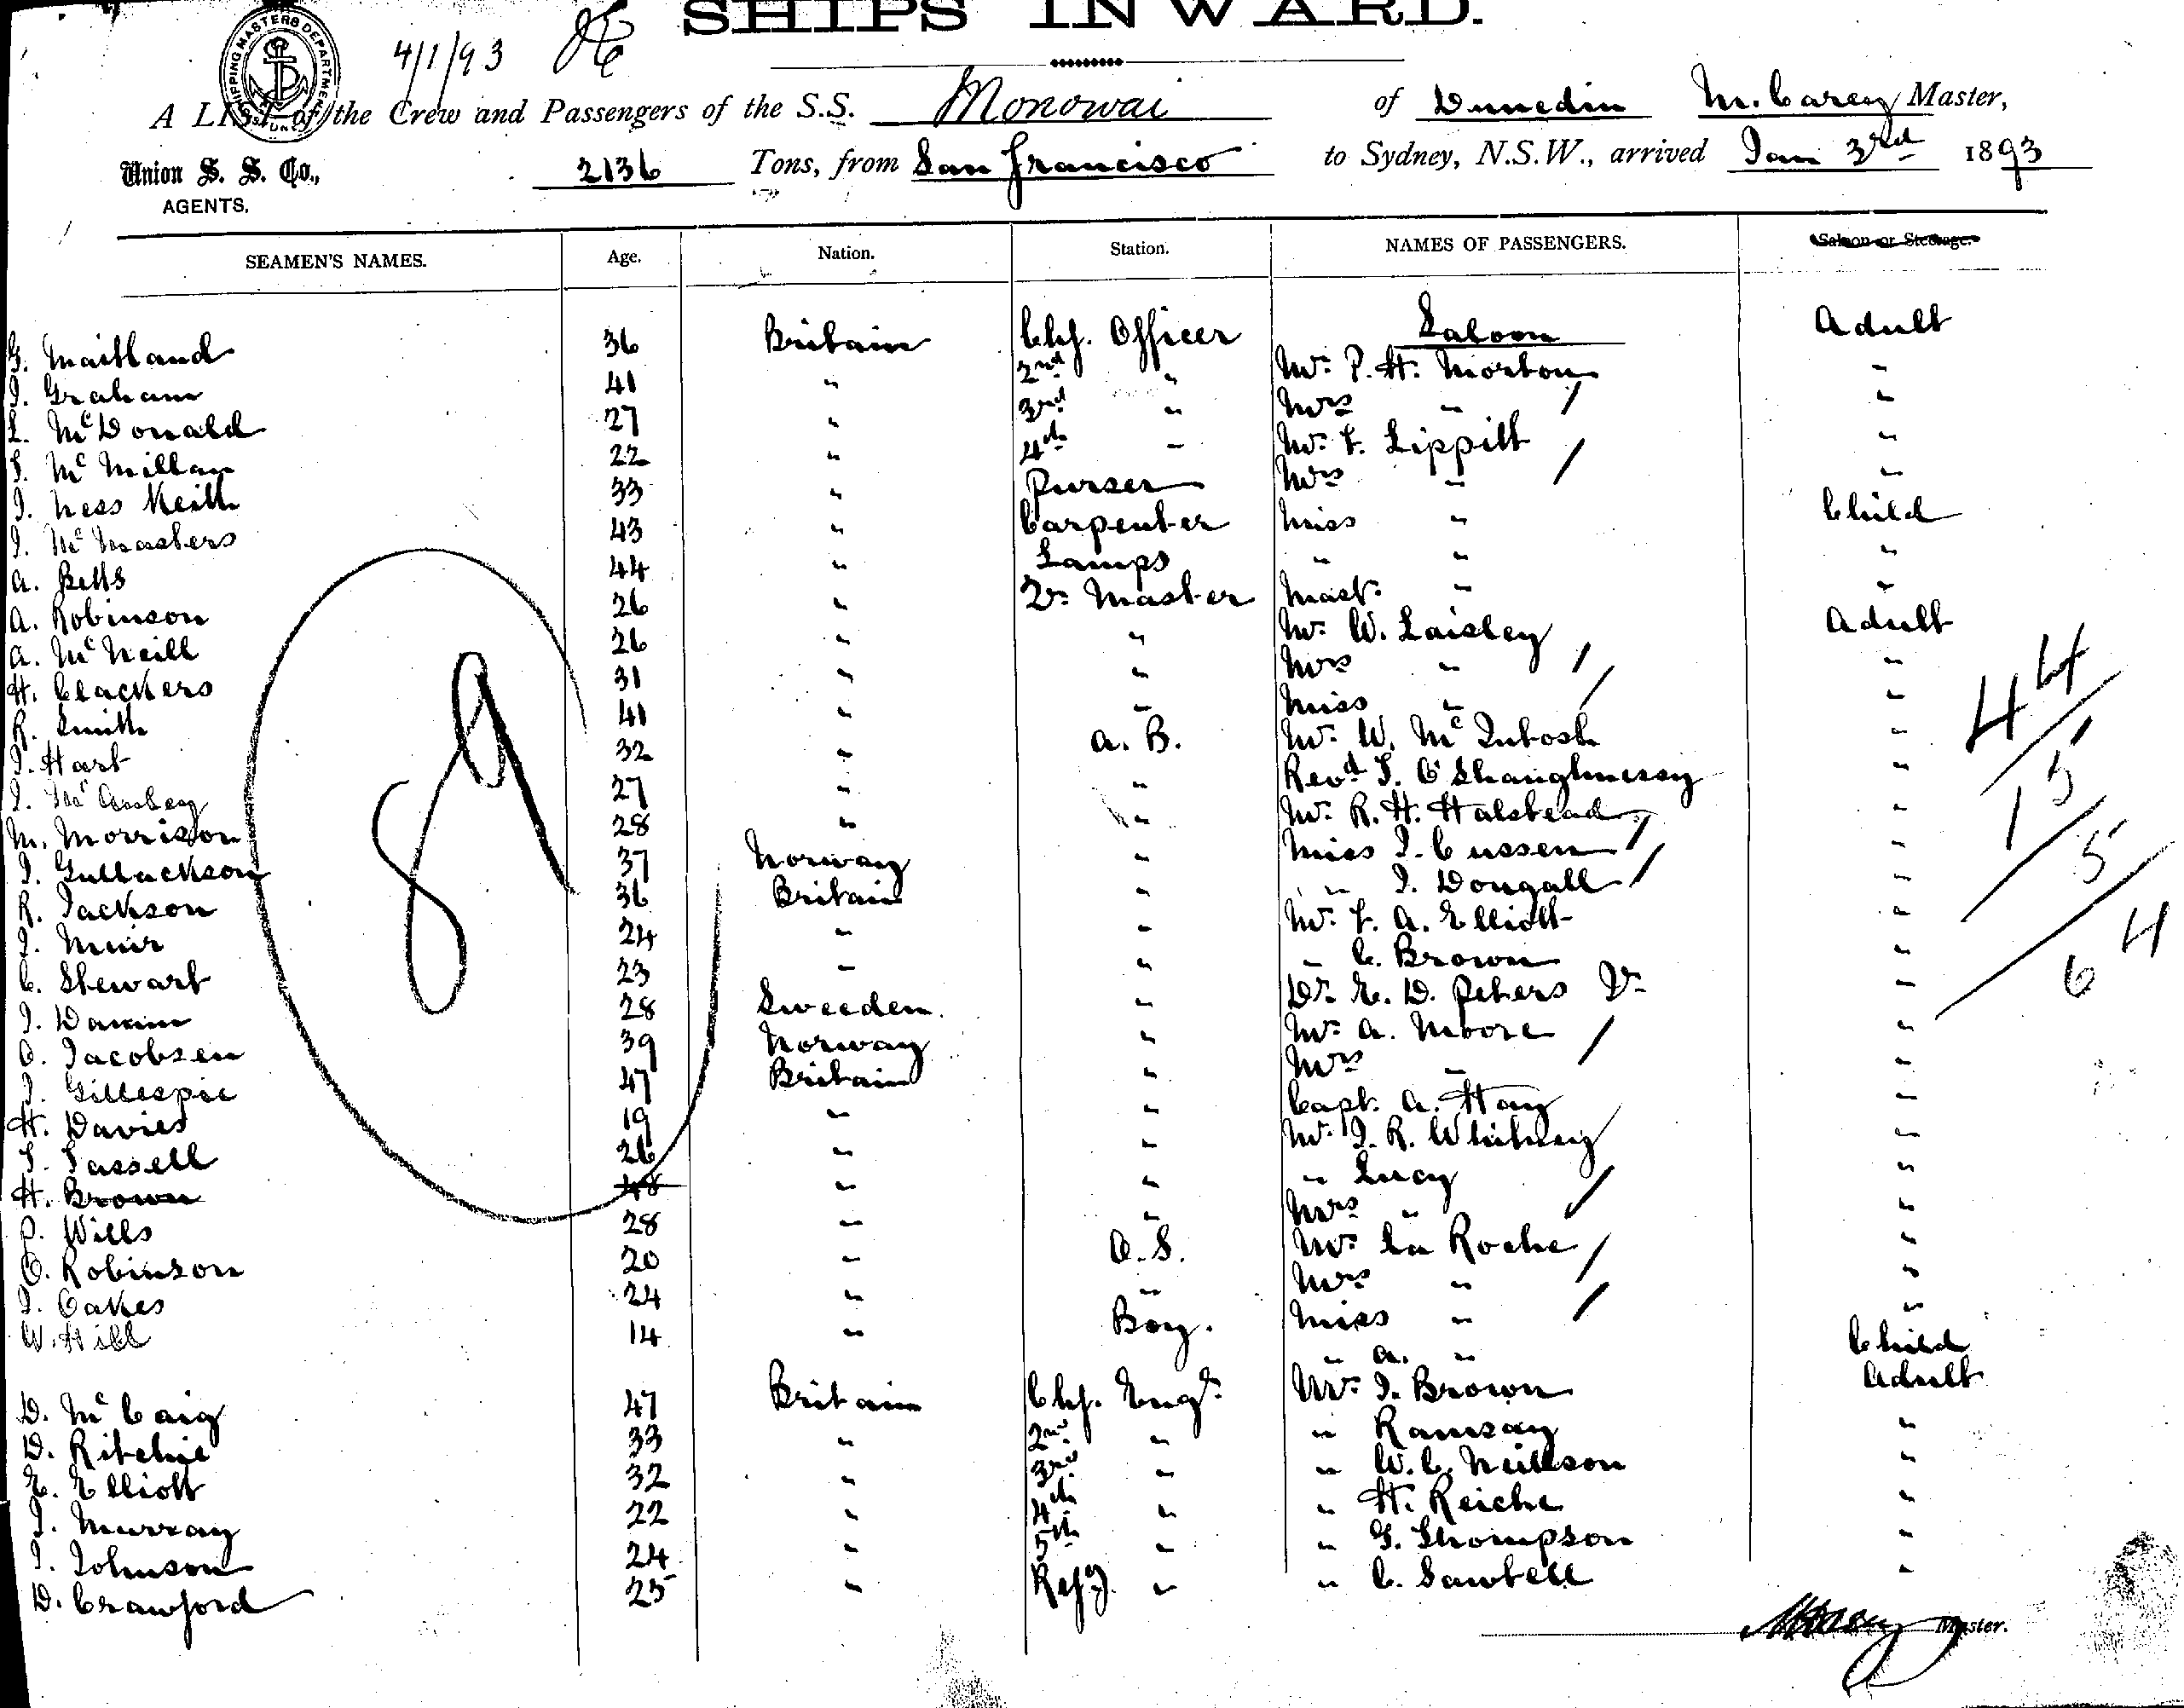 SHIPS INWARD.
SHIPPING MASTERS DEPARTMENT
4/1/93
A LIST of the Crew and Passengers of the S.S. Monowai of Dunedin M. Carey Master,
Union S. S. Co., 2136 Tons, from San Francisco to Sydney, N.S.W., arrived Jan 3rd 1893
AGENTS.
SEAMEN'S NAMES. Age. Nation. Station. NAMES OF PASSENGERS. Saloon or Steerage.
Saloon Adult
G. Maitland 36 Britain Chf. Officer Mr. P. H. Morton "
J. Graham 41 " 2nd " Mrs " "
L. McDonald 27 " 3rd " Mr. F. Lippitt "
S. McMillan 22 " 4th " Mrs " "
J. Ness Keith 33 " Purser Miss " Child
J. McMasters 43 " Carpenter " " "
A. Betts 44 " Lamps Mast. " "
A. Robinson 26 " Qr. Master Mr. W. Laisley Adult
A. McNeill 26 " " Mrs " "
H. Clackers 31 " " Miss " "
R. Smith 41 " " Mr. W. McIntosh "
J. Hart 32 " A. B. Revd. T. O'Shaughnessy "
J. 27 " " Mr. R. H. Halstead "
M. Morrison 28 " " Miss J. Cussen "
J. Gullackson 37 Norway " " J. Dougall "
R. Jackson 36 Britain " Mr. F. A. Elliott "
J. Muir 24 " " " C. Brown "
C. Stewart 23 " " Dr. E. D. Peters Jr. "
J. 28 Sweeden. " Mr. A. Moore "
O. Jacobsen 39 Norway " Mrs " "
J. Gillespie 47 Britain " Capt. A. Hay "
H. Davies 19 " " Mr. J. R. Whitney "
S. Sassell 26 " " " Lucy "
H. Brown 48 " " Mrs " "
P. Wills 28 " " Mr. La Roche "
O. Robinson 20 " O. S. Mrs " "
J. Oakes 24 " " Miss " "
W. Hill 14 " Boy. " A. " Child
D. McCaig 47 Britain Chf. Engr. Mr. J. Brown Adult
D. Ritchie 33 " 2nd " " Ramsay "
E. Elliott 32 " 3rd " " W. C. Neillson "
J. Murray 22 " 4th " " H. Reiche "
J. Johnson 24 " 5th " " G. Thompson "
D. Crawford 25 " Refg. " " C. Sawtell "
44
15
5
64
Master.